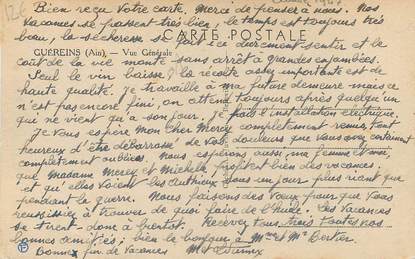 Bien reçu Votre carte. Merci de pensez a nous. Nos
Vacances se passent très bien, le temps est toujours très
beau, la sécheresse se fait ici durement sentir et le
CARTE POSTALE
GUÉREINS (Ain). - Vue Générale
coût de la vie monte sans arrêt à grandes enjambées.
Seul le vin baisse! la récolte assez importante est de
haute qualité. Je travaille à ma future demeure mais ce
n'est pas encore fini, on attend toujours après quelqu'un
qui ne vient qu'a son jour. Je fais l'installation électrique.
Je Vous espère Mon Cher Merey complètement remis, tant
heureux d'être débarrassé de Vos douleurs que vous avez certainement
complètement oubliées. Nous espérons aussi, ma femme et moi,
que Madame Merey et Michèle profitent bien des vacances.
et qu'elles voient les Authieux sous un jour plus riant que
pendant la guerre. Nous faisons des Vœux pour que Vous
réussissiez à trouver de quoi faire de l'huile. Les Vacances
se tirent donc a bientôt. Recevez tous trois toutes nos
bonnes amitiés; bien le bonjour à Mme et Mr Bertier.
Bonnes fin de Vacances